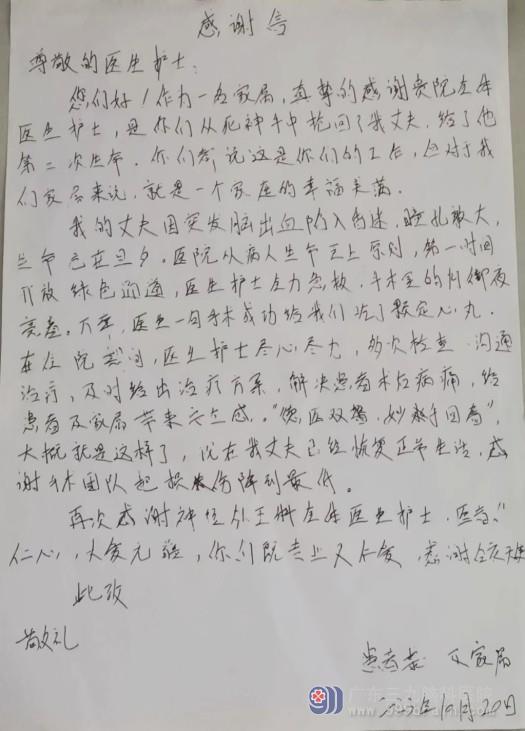 感谢信
尊敬的医生护士：
您们好！作为一名家属，真挚的感谢贵院全体
医生护士，是你们从死神手中抢回了我丈夫，给了他
第二次生命。你们常说这是你们的工作，但对于我
们家属来说，就是一个家庭的幸福美满。
我的丈夫因突发脑出血陷入昏迷，瞳孔散大，
生命已在旦夕。医院从病人生命至上原则，第一时间
开放绿色通道，医生护士全力急救。手术室的灯彻夜
亮着。万幸，医生一句手术成功给我们吃了颗定心丸。
在住院期间，医生护士尽心尽力，多次检查 沟通
治疗，及时给出治疗方案，解决患者术后病痛，给
患者及家属带来安全感。“德医双馨，妙手回春”，
大概就是这样了，现在我丈夫已经恢复正常生活，感
谢手术团队把损伤降到最低。
再次感谢神经外三科全体医生护士，医者
仁心，大爱无疆，你们既专业又仁爱，感谢白衣天使
此致
敬礼
患者 家属
10月20日
广东三九脑科医院